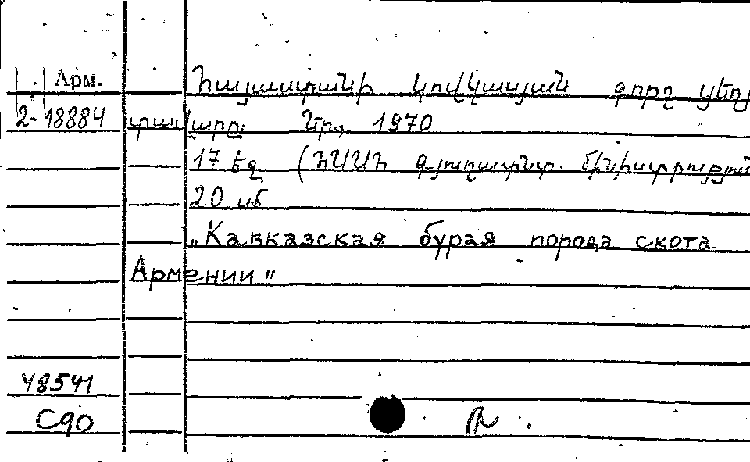 Арм. Հայաստանի կովկասյան գորշ ցեղ
2-18884 տավարը. Եր., 1970
17 էջ (ՀՍՍՀ գյուղատնտ.
20 սմ
„Кавказская бурая порода скота
Армении"
48541
С90